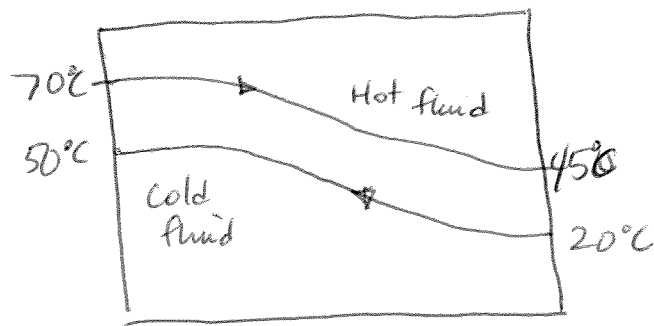 70°C
Hot fluid
50°C
45°C
Cold
fluid
20°C